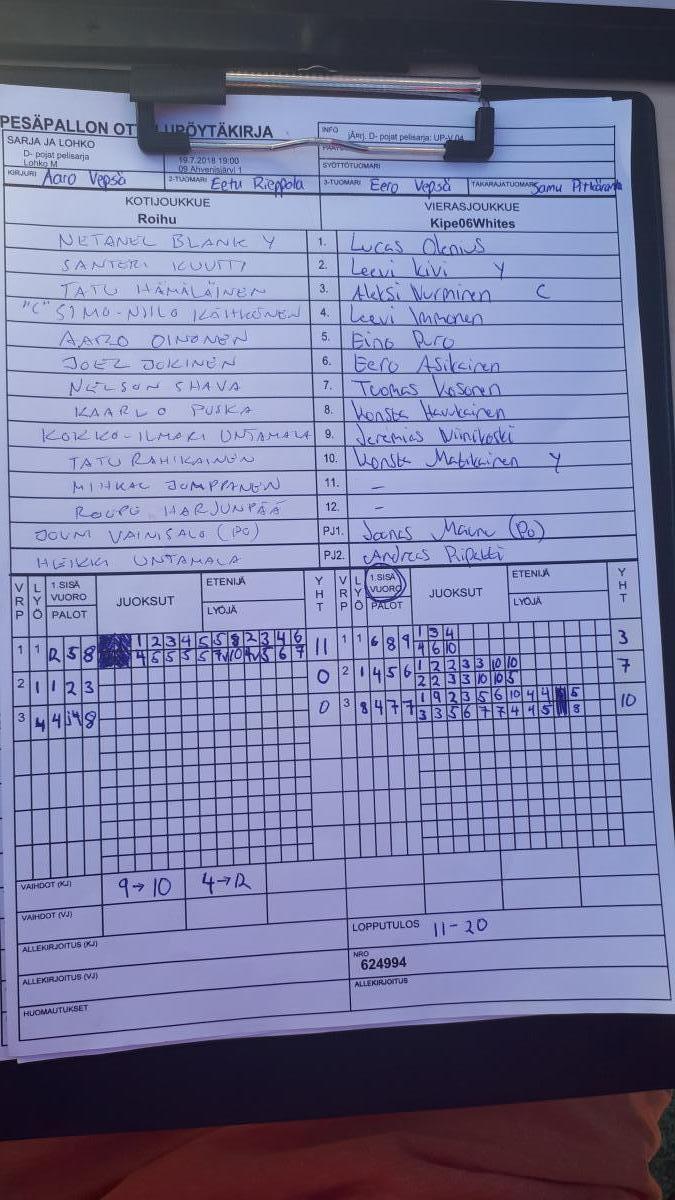 PESÄPALLON OTTELUPÖYTÄKIRJA
INFO
jÄrrj. D- pojat pelisarja: UP-V 04
SARJA JA LOHKO
D- pojat pelisarja
Lohko M
19.7.2018 19:00
09 Ahvenisjärvi 1
SYÖTTÖTUOMARI
KIRJURI Aaro Vepsä 2-TUOMARI Eetu Rieppola 3-TUOMARI Eero Vepsä TAKARAJATUOMARI Samu
KOTIJOUKKUE VIERASJOUKKUE
Roihu Kipe06Whites
NETANEL BLANK Y 1. Lucas Olenius
SANTERI KUUTTI 2. Leevi Kivi Y
TATU HÄMÄLÄINEN 3. Aleksi Nurminen C
"C" SIMO-NIILO KÄHKÖNEN 4. Leevi Immonen
AARO OINONEN 5. Eino Puro
JOEL JOKINEN 6. Eero Asikainen
NELSON SHAVA 7. Tuomas Kosonen
KAARLO PUSKA 8. Konsta Haukkainen
KOKKO-ILMARI UNTAMALA 9. Jeremias Niinikoski
TATU RAHIKAINEN 10. Konsta Matikainen Y
MIHKAL JOMPPANEN 11. –
ROOPE HARJUNPÄÄ 12. –
JOUNI VAINISALO (PO) PJ1. Joonas (Po)
HEIKKI UNTAMALA PJ2. Andreas Ripatti
VRP LYÖ 1.SISÄ VUORO PALOT JUOKSUT ETENIJÄ LYÖJÄ YHT VRP LYÖ 1.SISÄ VUORO PALOT JUOKSUT ETENIJÄ LYÖJÄ YHT
1 1 R 5 8 11 1 1 6 8 9 1 3 4 3
4 6 10
2 1 1 2 3 0 2 1 4 5 6 1 2 2 3 3 10 10 7
2 2 3 3 10 10 5
3 4 4 8 0 3 8 4 7 7 1 9 2 3 5 6 10 4 4 5 10
3 3 5 6 7 7 4 4 5 8
VAIHDOT (KJ) 9→10 4→12
VAIHDOT (VJ)
ALLEKIRJOITUS (KJ) LOPPUTULOS 11-20
ALLEKIRJOITUS (VJ) NRO
624994
HUOMAUTUKSET ALLEKIRJOITUS